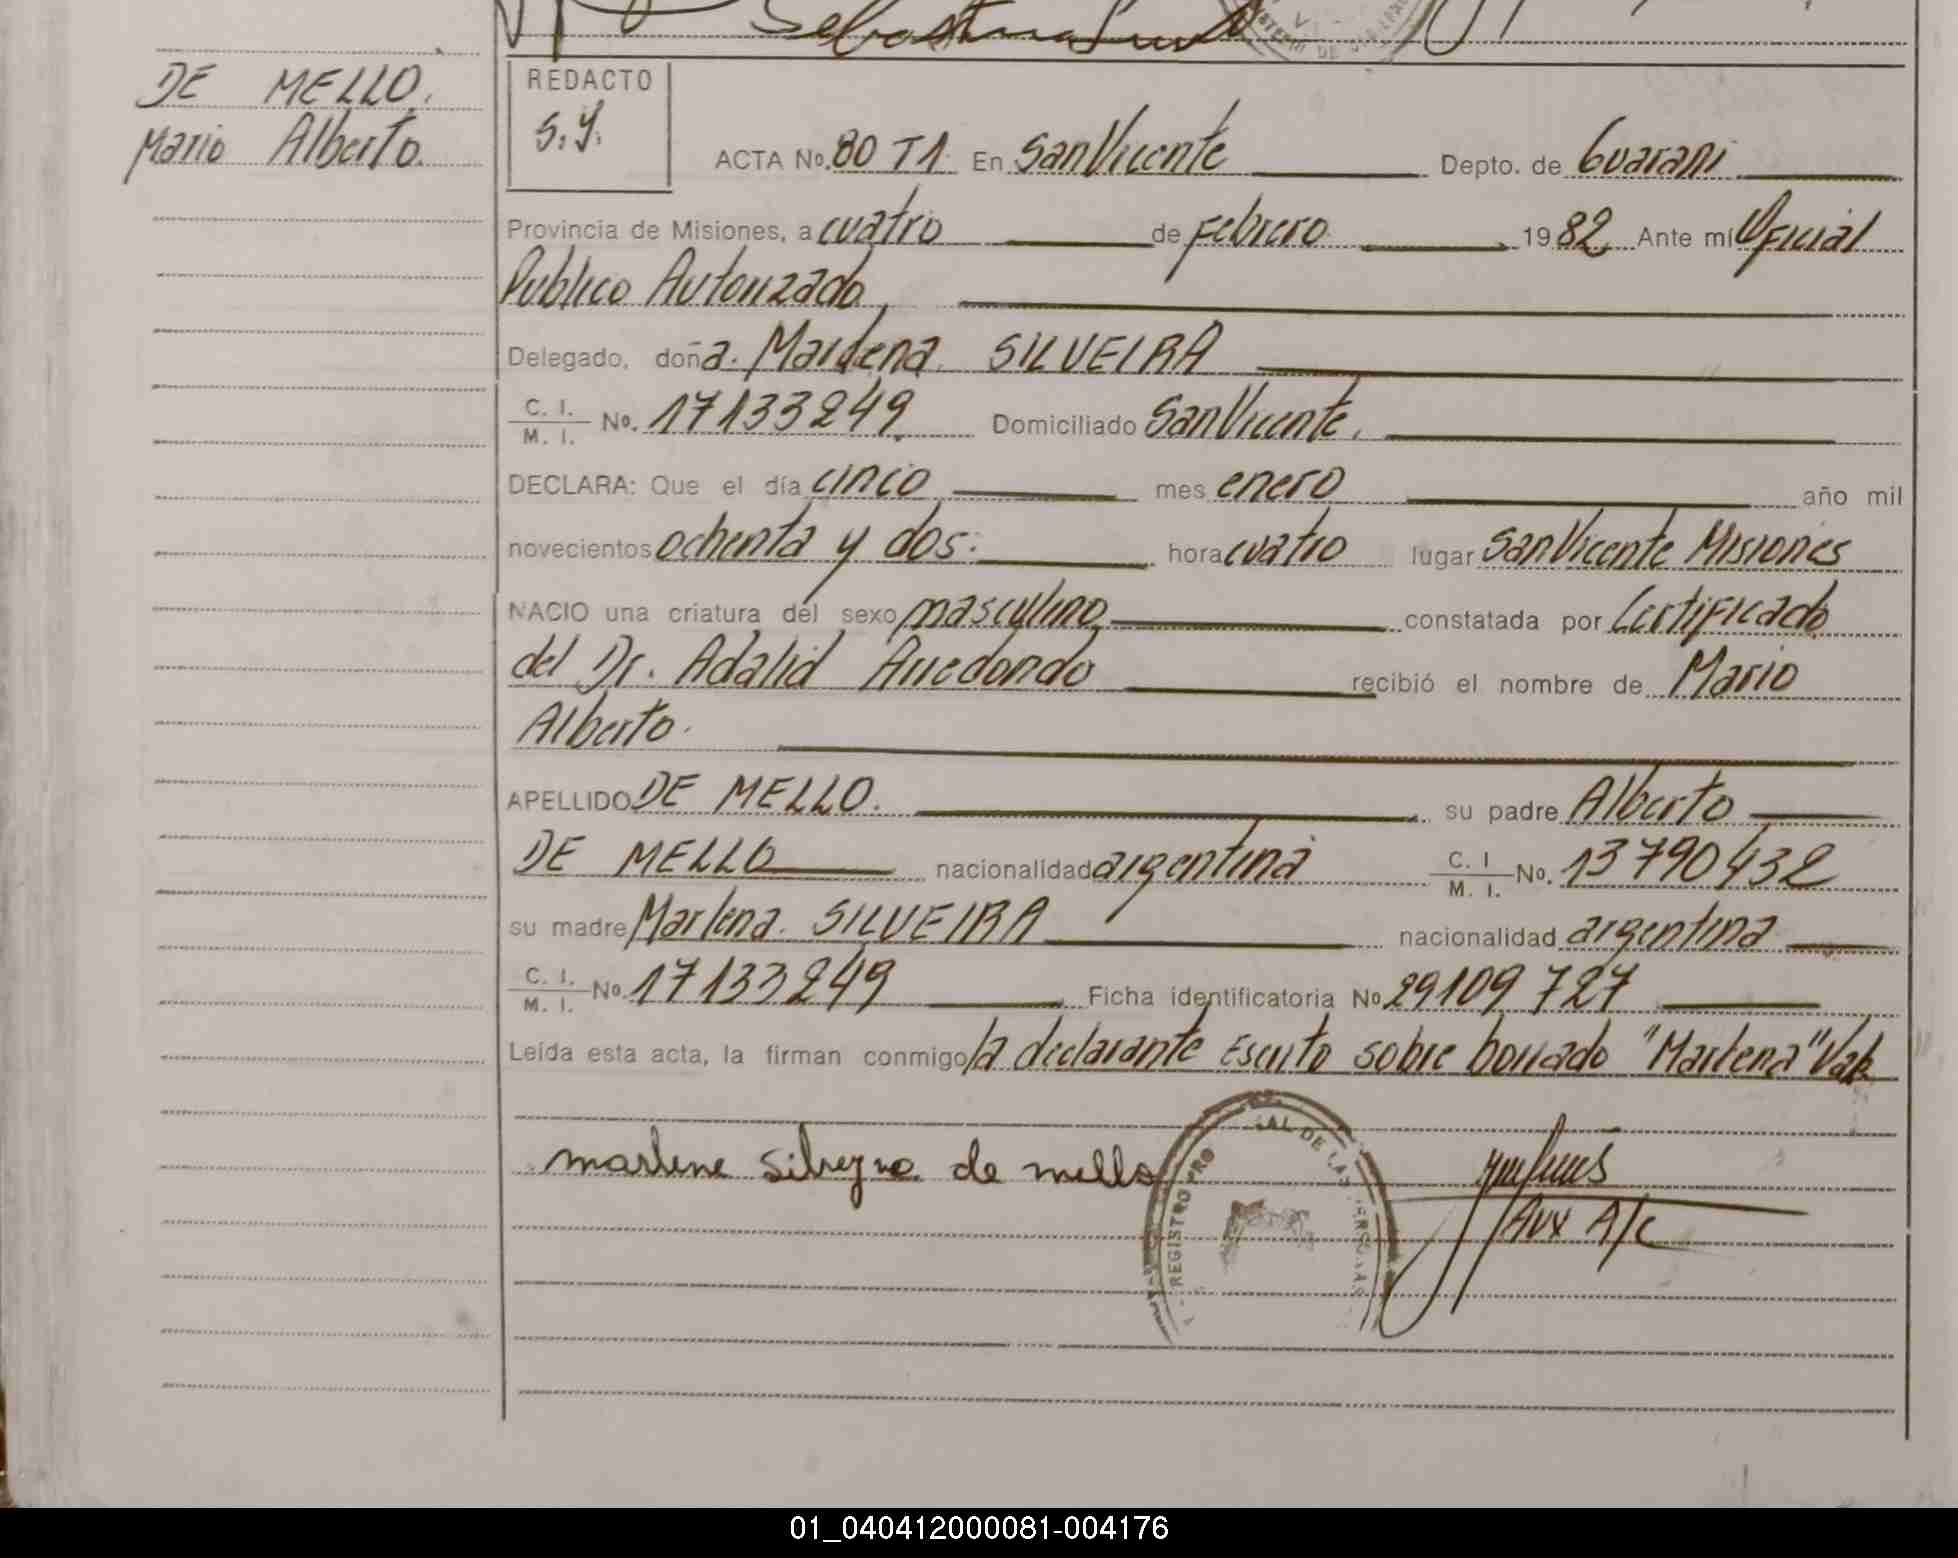 DE MELLO.
Mario Alberto.
REDACTO
S.Y.
ACTA No. 80 T1. En San Vicente Depto. de Guarani
Provincia de Misiones, a cuatro de Febrero 1982. Ante mí Oficial
Publico Autorizado,
Delegado, doña. Marlena. SILVEIRA
C. I.
M. I. No. 17133249 Domiciliado San Vicente.
DECLARA: Que el día cinco mes enero año mil
novecientos ochenta y dos. hora cuatro lugar San Vicente Misiones
NACIO una criatura del sexo masculino, constatada por Certificado
del Dr. Adalid Arredondo recibió el nombre de Mario
Alberto.
APELLIDO DE MELLO. su padre Alberto
DE MELLO nacionalidad argentina C. I. M. I. No. 13790432
su madre Marlena. SILVEIRA nacionalidad argentina
C. I.
M. I. No. 17133249 Ficha identificatoria No 29109727
Leída esta acta, la firman conmigo la declarante Escrito sobre borrado "Marlena" Vale
marlene silveyra de mello
REGISTRO PRO AL DE LAS PERSONAS
Aux A/C
01_040412000081-004176